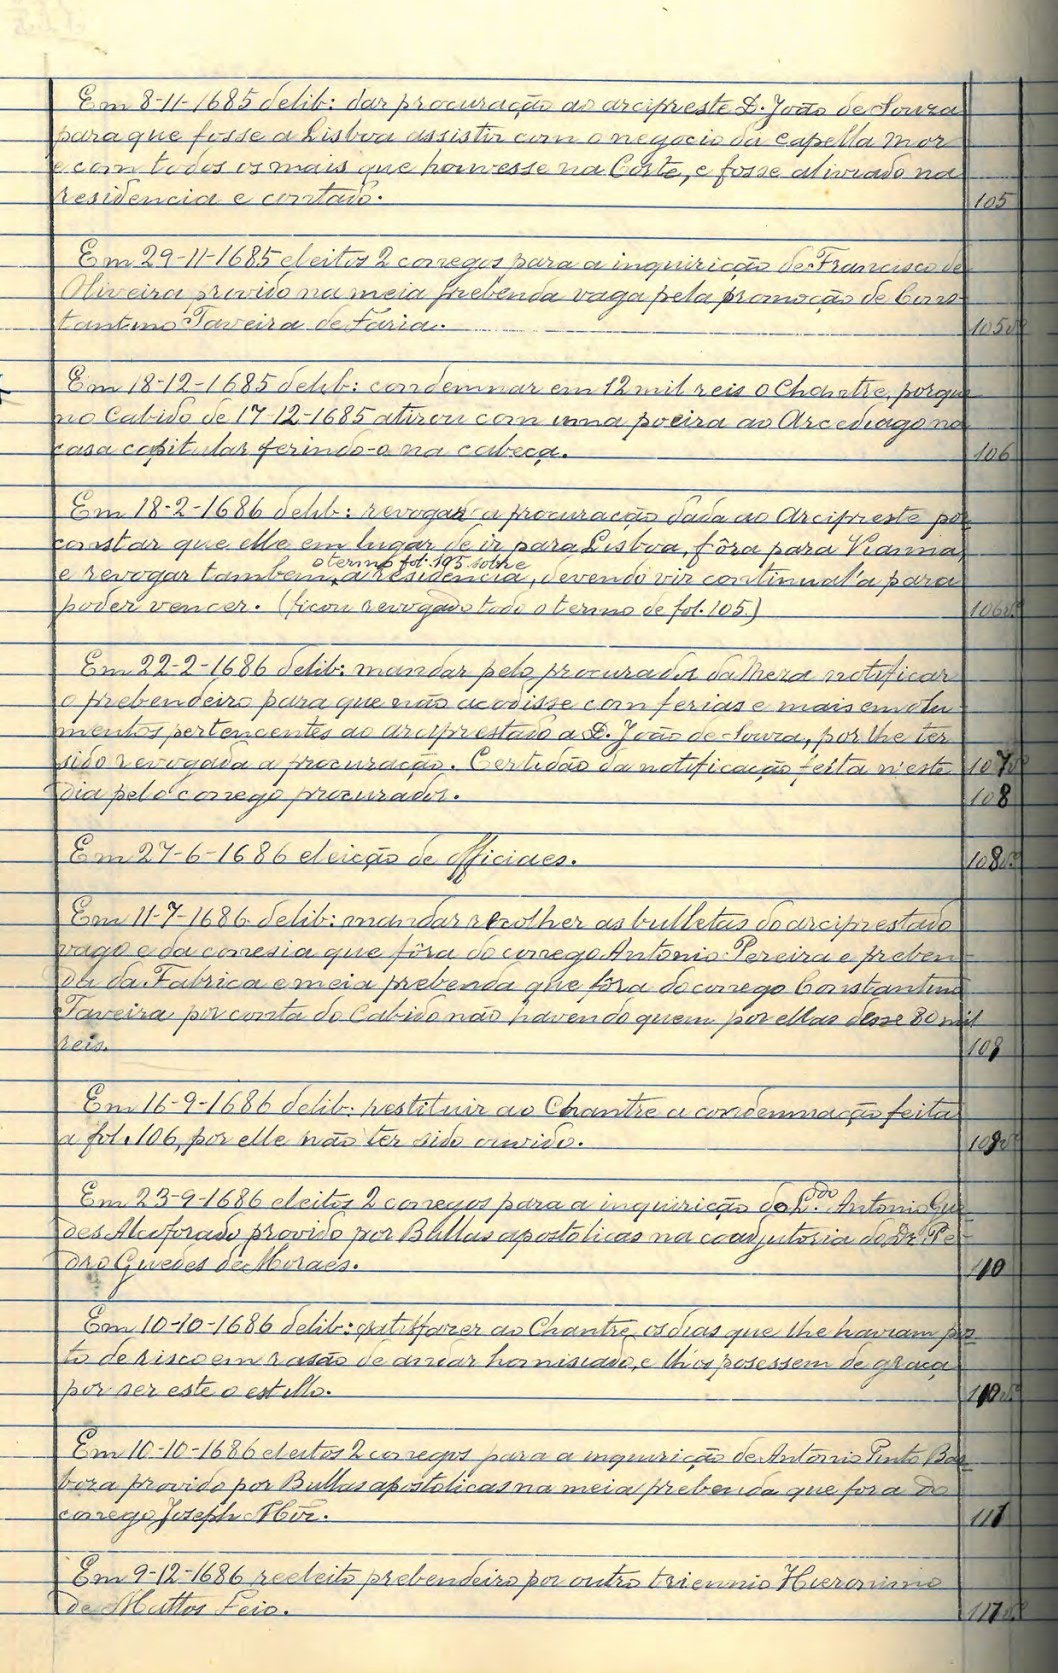 Em 8-11-1685 delib: dar procuração ao arcipreste D. João de Souza
para que fosse a Lisboa assistir com o negocio da Capella mor
e com todos os mais que houvesse na Corte, e fosse aliviado na
residencia e contado. 105
Em 29-11-1685 eleitos 2 conegos para a inquirição de Francisco de
Oliveira provido na meia prebenda vaga pela promoção de Cons-
tantino Taveira de Faria. 105vº
Em 18-12-1685 delib: condemnar em 12 mil reis o Chantre, porque
no Cabido de 17-12-1685 atirou com uma poeira ao Arcediago na
casa capitular ferindo-o na cabeça. 106
Em 18-2-1686 delib: revogar a procuração dada ao Arcipreste por
constar que elle em lugar de ir para Lisboa, fôra para Vianna,
o termo fol. 105 sobre
e revogar tambem a residencia, devendo vir continual'a para
poder vencer. (ficou revogado todo o termo de fol. 105.) 106vº
Em 22-2-1686 delib: mandar pelo procurador da Meza notificar
o prebendeiro para que não acodisse com ferias e mais emolu
mentos pertencentes ao arciprestado a D. João de Souza, por lhe ter
sido revogada a procuração. Certidão da notificação feita n'este 107vº
dia pelo conego procurador. 108
Em 27-6-1686 eleição de officiaes. 108vº
Em 11-7-1686 delib: mandar recolher as bulletas do arciprestado
vago e da conesia que fôra do conego Antonio Pereira e preben-
da da Fabrica e meia prebenda que fôra do conego Constantino
Taveira por conta do Cabido não havendo quem por ellas desse 80 mil
reis. 109
Em 16-9-1686 delib: restituir ao Chantre a condemnação feita
a fol. 106, por elle não ter sido ouvido. 109vº
Em 23-9-1686 eleitos 2 conegos para a inquirição do L.do Antonio Gue
des Alcoforado provido por Bullas apostolicas na coadjutoria do Dr Pe-
dro Guedes de Moraes. 110
Em 10-10-1686 delib: satisfazer ao Chantre os dias que lhe haviam pos
to de risco em rasão de andar homisiado, e lh'os posessem de graça
por ser este o estillo. 110vº
Em 10-10-1686 eleitos 2 conegos para a inquirição de Antonio Pinto Bar
boza provido por Bullas apostolicas na meia prebenda que fora do
conego Joseph Mor. 111
Em 9-12-1686 reeleito prebendeiro por outro triennio Hieronimo
de Mattos Feio. 111vº